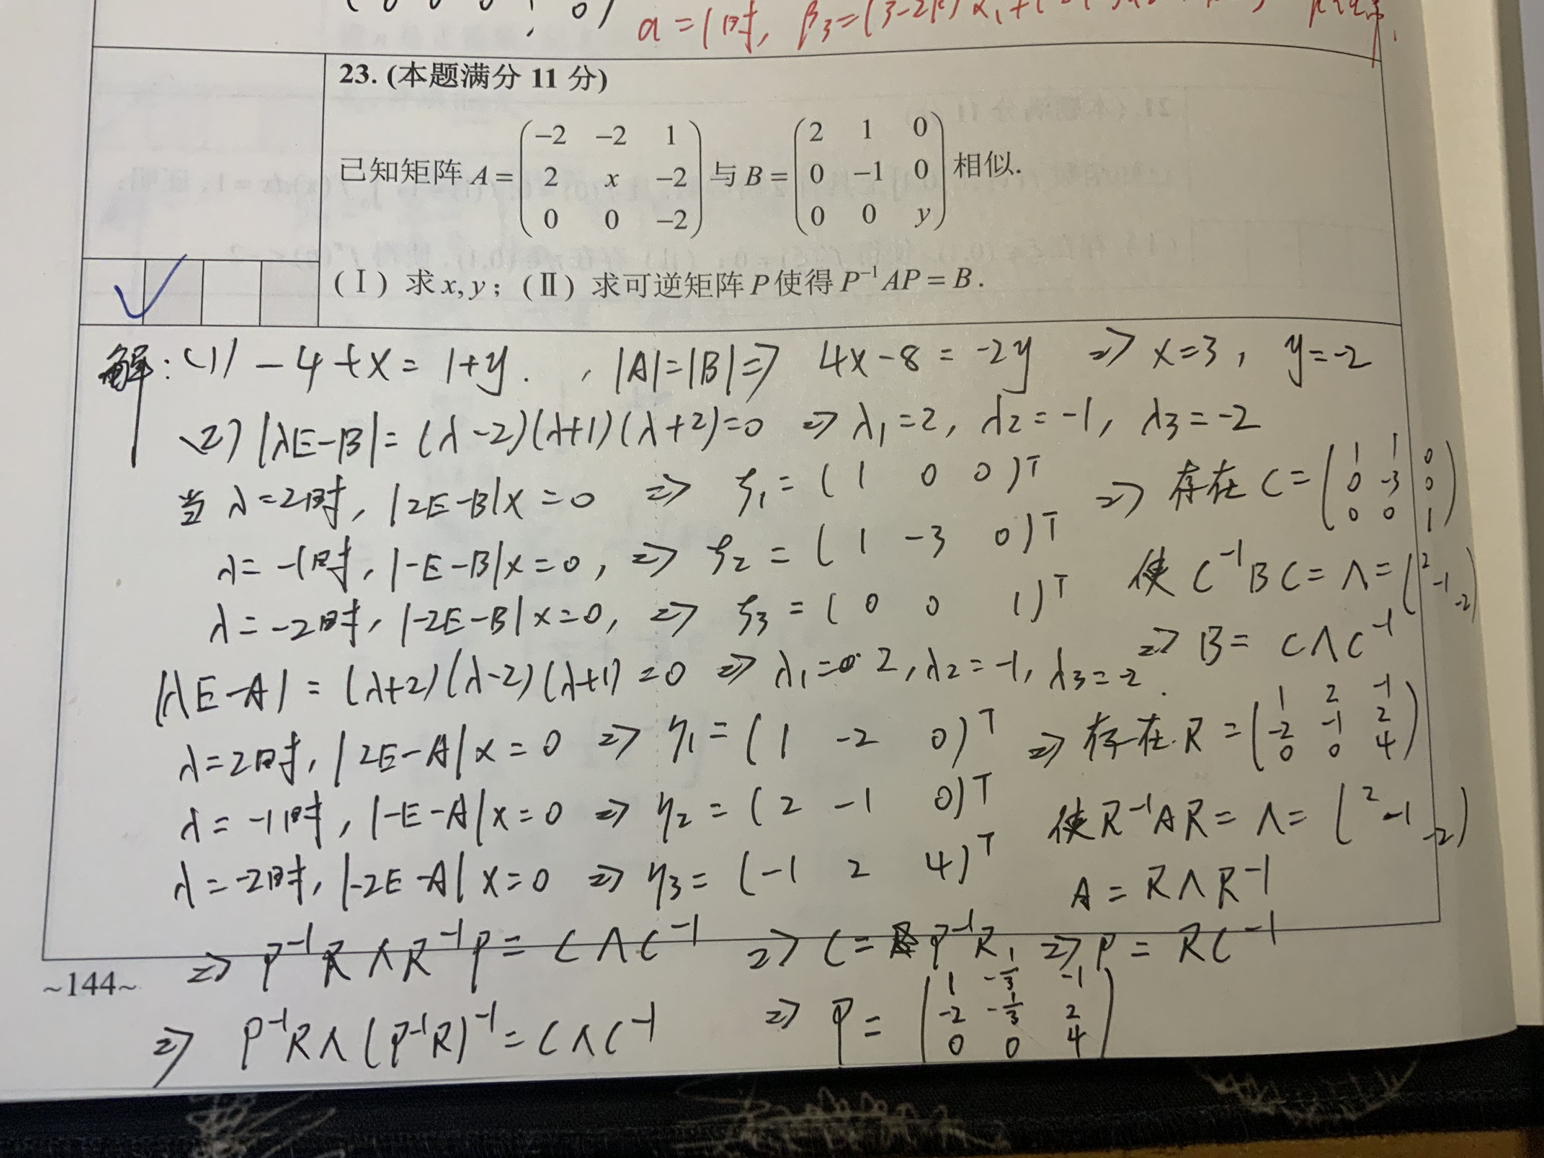 a=1时, β₃=(3-2k)α₁+
23. (本题满分 11 分)
已知矩阵 A = \begin{pmatrix} -2 & -2 & 1 \\ 2 & x & -2 \\ 0 & 0 & -2 \end{pmatrix} 与 B = \begin{pmatrix} 2 & 1 & 0 \\ 0 & -1 & 0 \\ 0 & 0 & y \end{pmatrix} 相似.
(Ⅰ) 求 x, y; (Ⅱ) 求可逆矩阵 P 使得 P⁻¹AP = B.
解: (1) -4+x = 1+y. , |A|=|B| ⇒ 4x-8 = -2y ⇒ x=3, y=-2
(2) |λE-B| = (λ-2)(λ+1)(λ+2)=0 ⇒ λ₁=2, λ₂=-1, λ₃=-2
当 λ=2时, |2E-B|x=0 ⇒ ξ₁ = (1 0 0)ᵀ ⇒ 存在 C = \begin{pmatrix} 1 & 1 & 0 \\ 0 & -3 & 0 \\ 0 & 0 & 1 \end{pmatrix}
λ=-1时, |-E-B|x=0, ⇒ ξ₂ = (1 -3 0)ᵀ 使 C⁻¹BC = Λ = \begin{pmatrix} 2 & & \\ & -1 & \\ & & -2 \end{pmatrix}
λ=-2时, |-2E-B|x=0, ⇒ ξ₃ = (0 0 1)ᵀ ⇒ B = CΛC⁻¹
|λE-A| = (λ+2)(λ-2)(λ+1)=0 ⇒ λ₁=2, λ₂=-1, λ₃=-2.
λ=2时, |2E-A|x=0 ⇒ η₁ = (1 -2 0)ᵀ ⇒ 存在 R = \begin{pmatrix} 1 & 2 & -1 \\ -2 & -1 & 2 \\ 0 & 0 & 4 \end{pmatrix}
λ=-1时, |-E-A|x=0 ⇒ η₂ = (2 -1 0)ᵀ 使 R⁻¹AR = Λ = \begin{pmatrix} 2 & & \\ & -1 & \\ & & -2 \end{pmatrix}
λ=-2时, |-2E-A|x=0 ⇒ η₃ = (-1 2 4)ᵀ A = RΛR⁻¹
⇒ P⁻¹RΛR⁻¹P = CΛC⁻¹ ⇒ C = P⁻¹R, ⇒ P = RC⁻¹
⇒ P⁻¹RΛ(P⁻¹R)⁻¹ = CΛC⁻¹ ⇒ P = \begin{pmatrix} 1 & -\frac{1}{3} & -1 \\ -2 & -\frac{1}{3} & 2 \\ 0 & 0 & 4 \end{pmatrix}
~144~